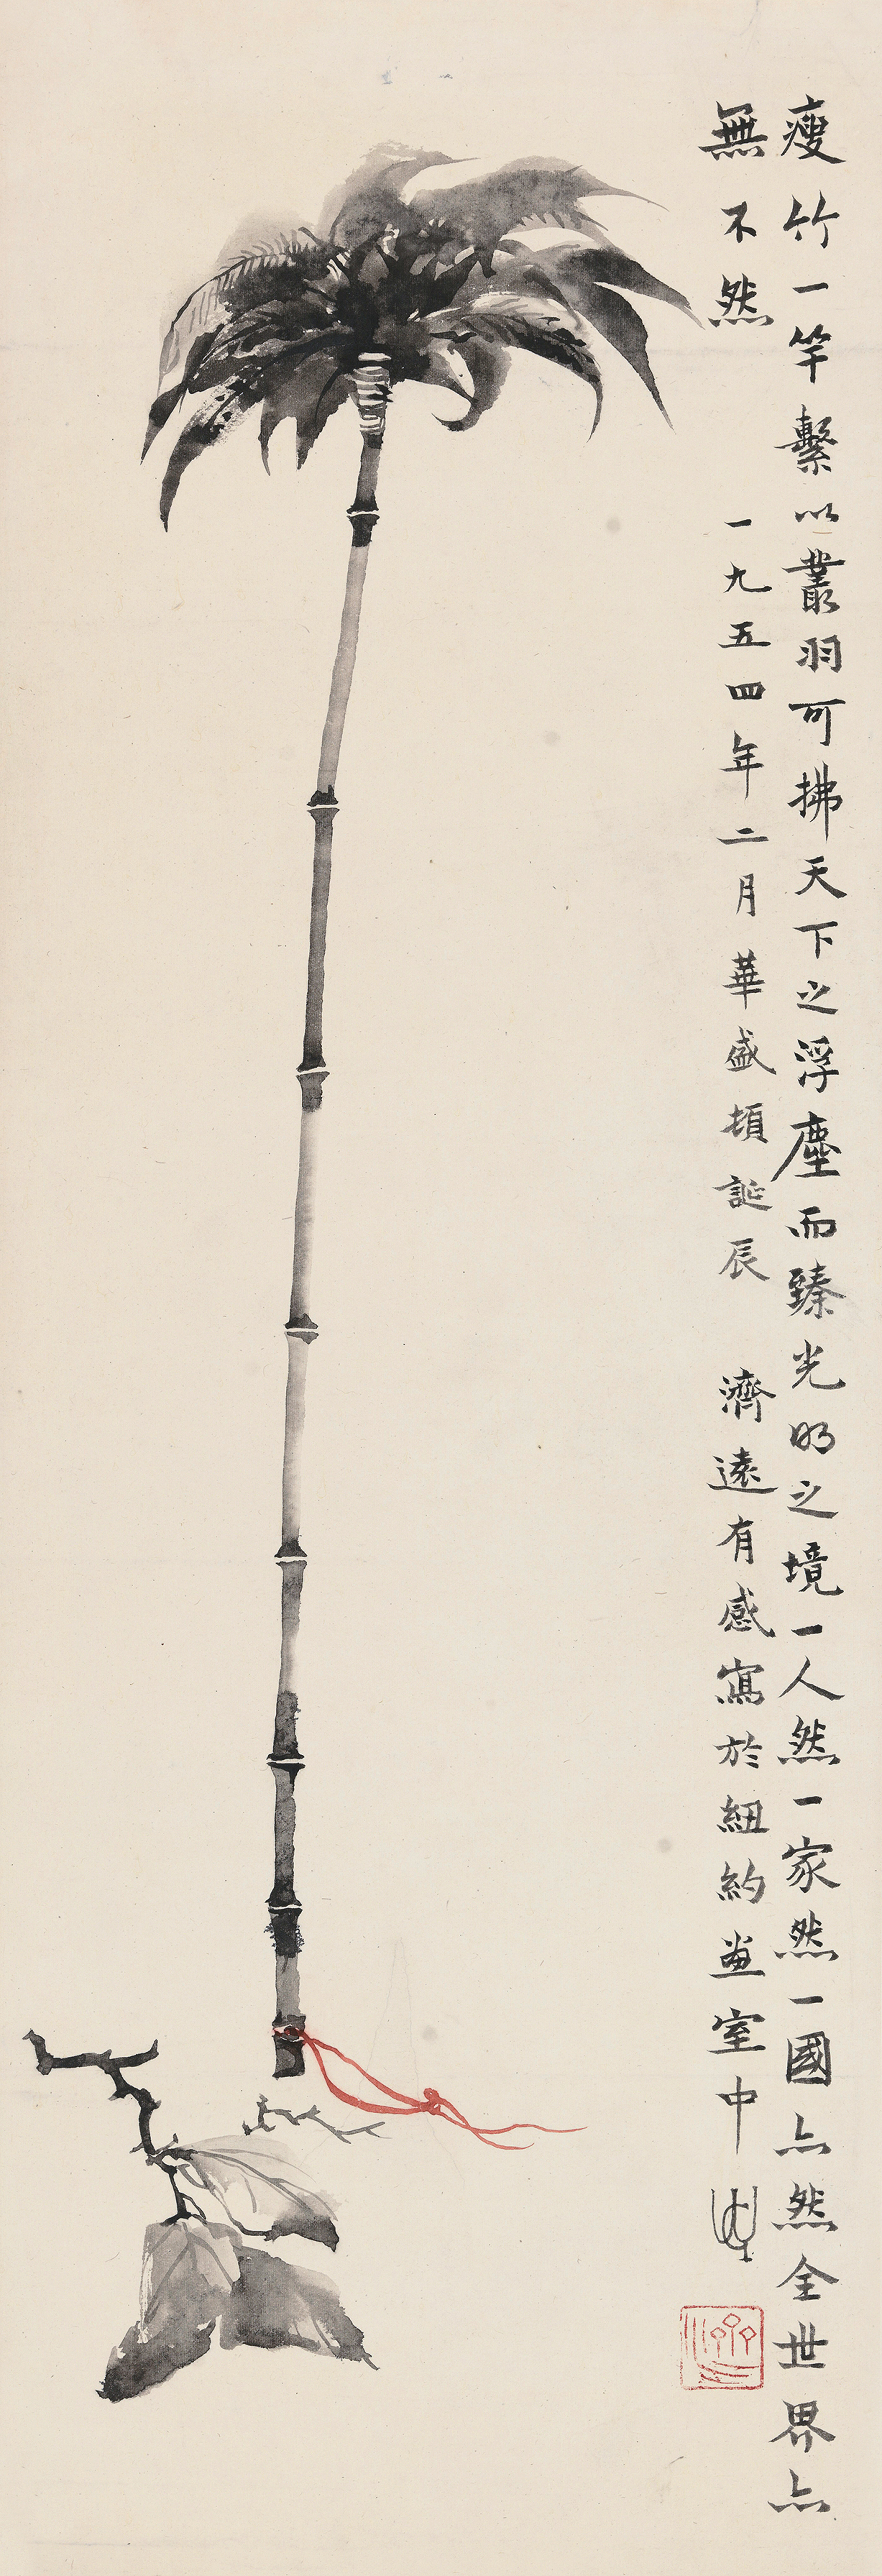 瘦竹一竿繫以叢羽可拂天下之浮塵而臻光明之境一人然一家然一國亦然全世界亦
無不然 一九五四年二月華盛頓誕辰 濟遠有感寫於紐約畫室中